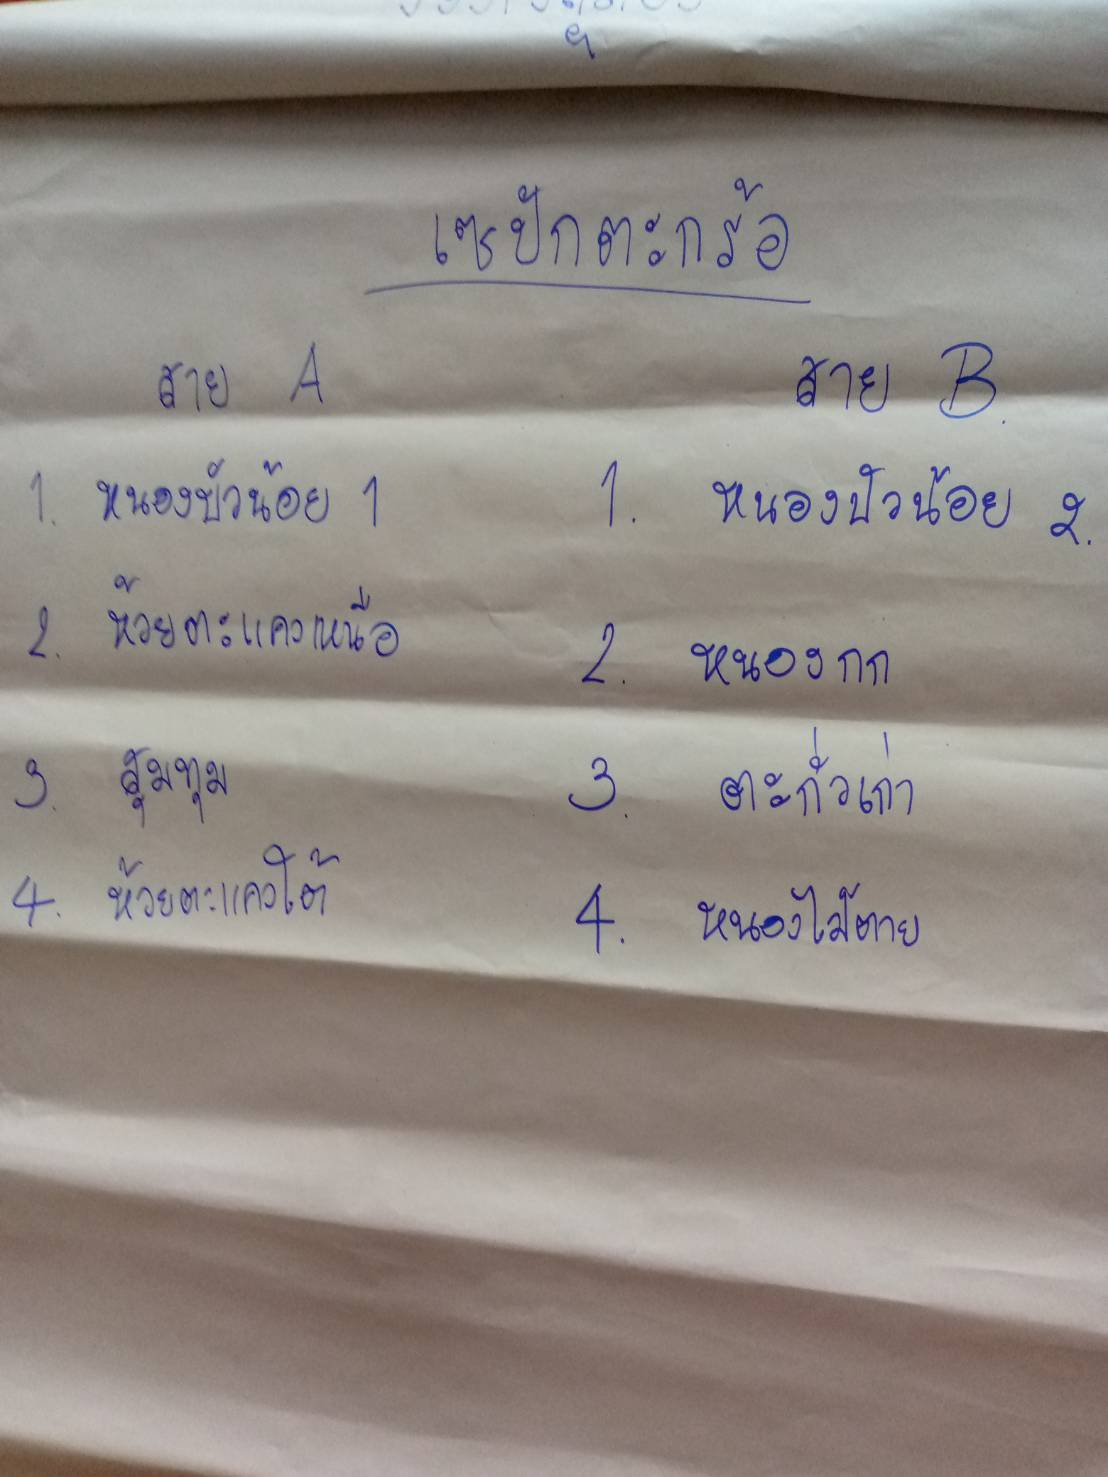 เซปักตะกร้อ
สาย A
สาย B.
1. หนองบัวน้อย 1
1. หนองบัวน้อย 2.
2. ห้วยตะแคงเหนือ
2. หนองกก
3. สุมทุม
3. ตะกั่วเก่า
4. ห้วยตะแคงใต้
4. หนองไม้ตาย